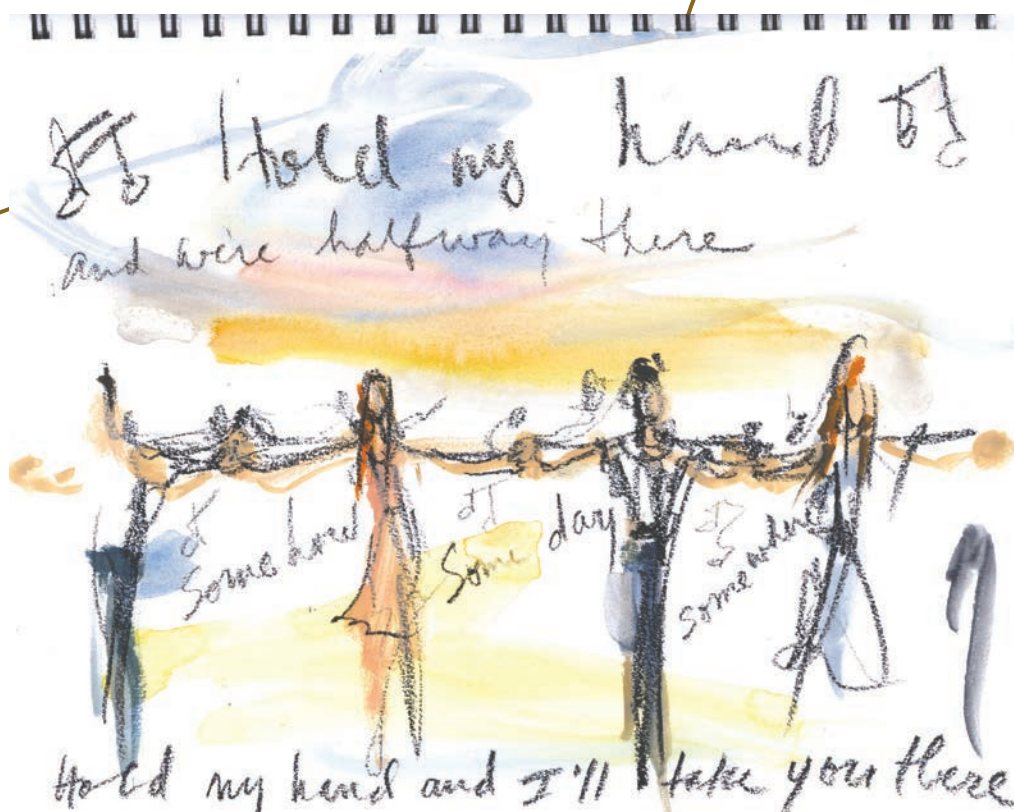 Hold my hand
and we're halfway there
Somehow
Some day
somewhere
Hold my hand and I'll take you there